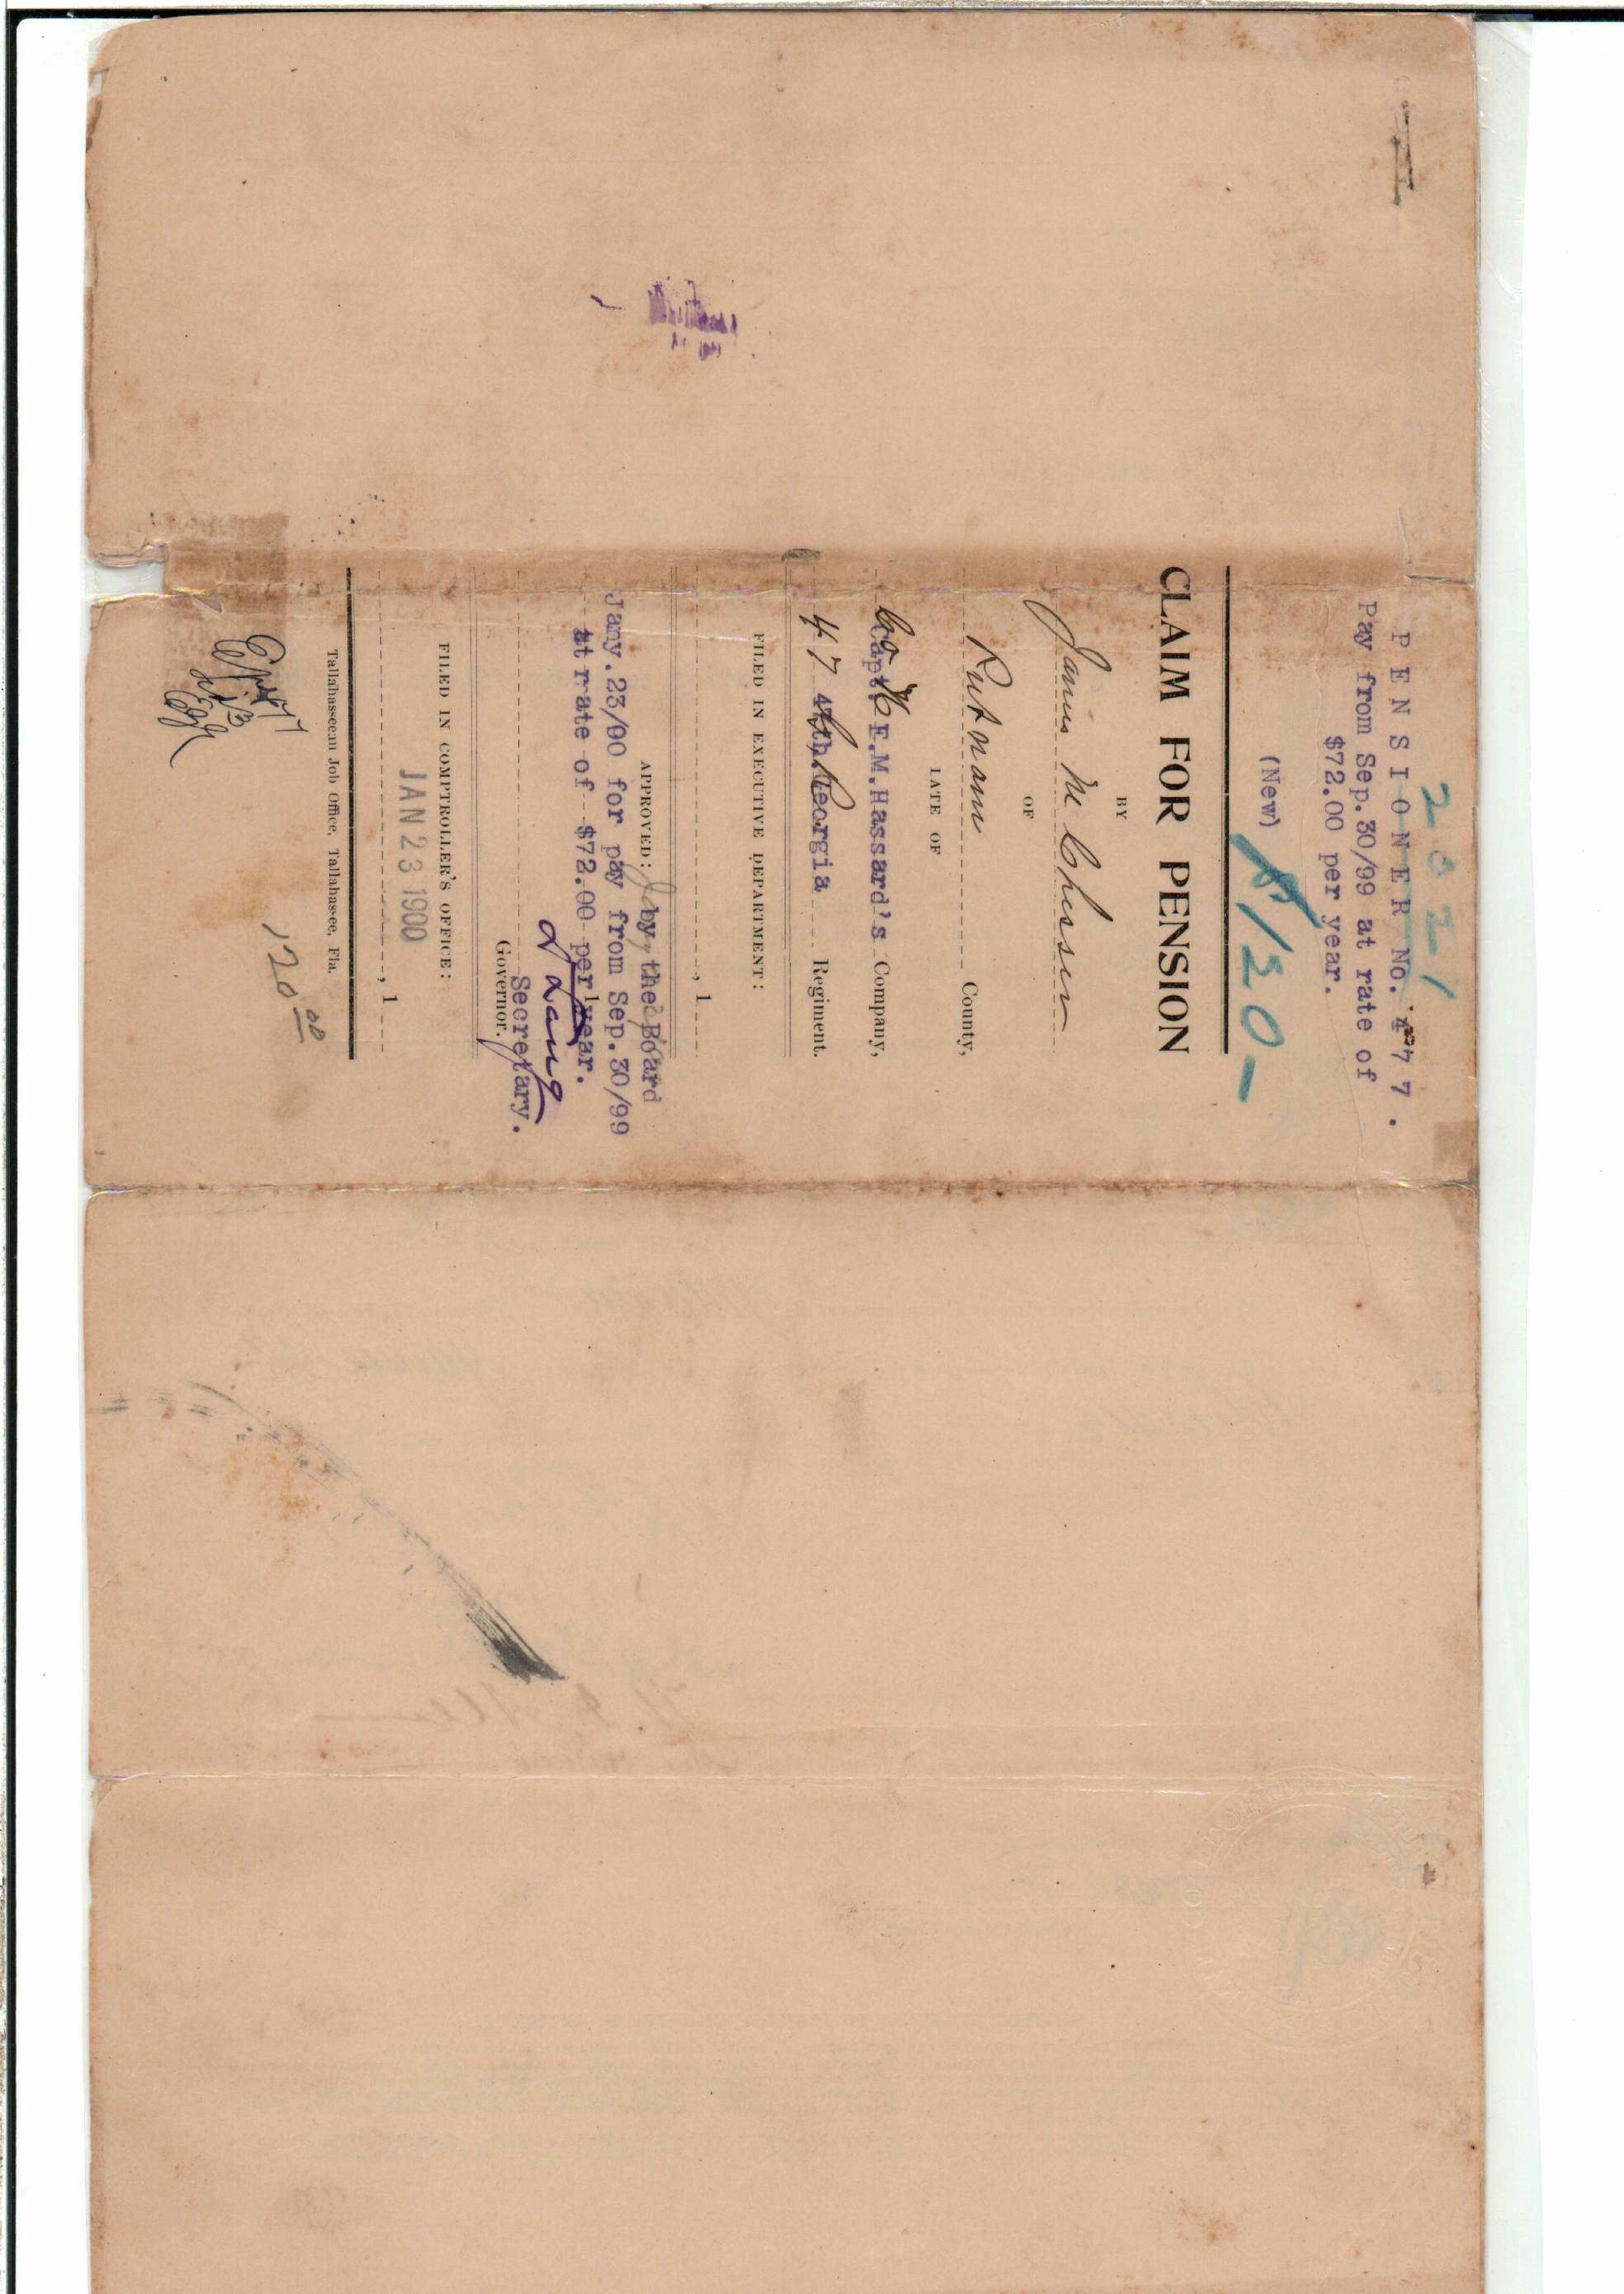 2021
PENSIONER No. 477.
Pay from Sep.30/99 at rate of
$72.00 per year.
(New)
$120-
CLAIM FOR PENSION
BY
James M Chesser
OF
Putnam County,
LATE OF
Co H Capt. E.M.Hassard's Company,
47 47th.Georgia Regiment.
FILED IN EXECUTIVE DEPARTMENT:
, 1
APPROVED: by the Board
Jany.23/00 for pay from Sep.30/99
at rate of $72.00 per year.
Secretary.
Governor.
FILED IN COMPTROLLER'S OFFICE:
JAN 23 1900
, 1
Tallahasseean Job Office, Tallahassee, Fla.
120 00